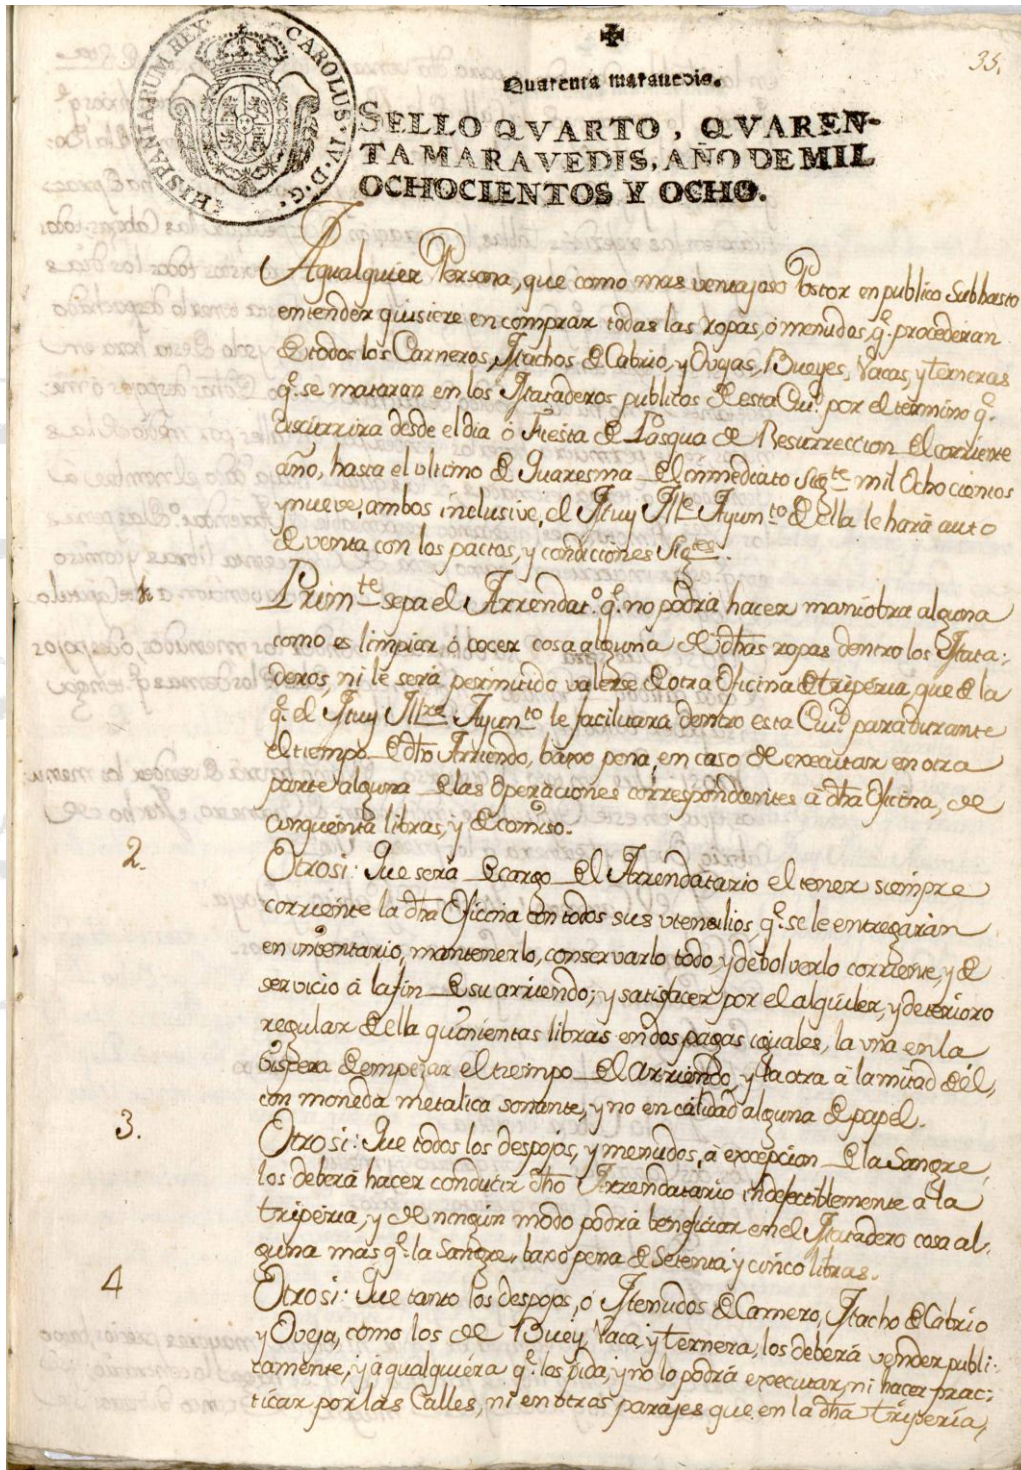 HISPANIARUM REX. CAROLUS. IV. D. G.
35.
Quarenta maravedis.
SELLO QVARTO, QVAREN-
TA MARAVEDIS, AÑO DE MIL
OCHOCIENTOS Y OCHO.
A qualquier Persona, que como mas ventajoso Postor en publico Subhasto
entender quisiere en comprar todas las ropas, ó menudos, q.e procederan
de todos los Carneros, Machos de Cabrio, y Ovejas, Bueyes, Vacas, y terneras
q.e se mataran en los Mataderos publicos de esta Ciu.d por el termino q.e
discurrira desde el dia ó Fiesta de Pasqua de Resurreccion del corriente
año, hasta el ultimo de Quaresma del inmediato Sig.te mil Ochocientos
y nueve, ambos inclusive, el Muy Ill.e Ayun.to de ella le hará auto
de venta con los pactos, y condiciones Sig.tes
1. Prim.te sepa el Arrendat.o q.e no podrá hacer maniobra alguna
como es limpiar ó cocer cosa alguna de dhas ropas dentro los Mata-
deros, ni le será permitido valerse de otra Oficina de triperia, que de la
q.e el Muy Ill.re Ayun.to le facilitará dentro esta Ciu.d para durante
el tiempo de dho Arriendo, baxo pena, en caso de executar en otra
parte alguna de las Operaciones correspondientes á dha Oficina, de
cinquenta libras, y decomiso.
2. Otrosi: Que será de cargo del Arrendatario el tener siempre
corriente la dha Oficina con todos sus utensilios, q.e se le entregarán
en inventario, mantenerlo, conservarlo todo, y debolverlo corriente, y de
servicio á la fin de su arriendo; y satisfacer por el alquiler, y deterioro
regular de ella quinientas libras en dos pagas iguales, la una en la
Vispera de empezar el tiempo del Arriendo, y la otra á la mitad de él,
con moneda metalica sonante, y no en calidad alguna de papel.
3. Otrosi: Que todos los despojos, y menudos, á excepcion de la Sangre,
los deberá hacer conducir dho Arrendatario indefectiblemente a la
triperia, y de ningun modo podrá beneficiar en el Matadero cosa al-
guna mas q.e la Sangre, baxo pena de Setenta y cinco libras.
4 Otrosi: Que tanto los despojos, ó Menudos de Carnero, Macho de Cabrio
y Oveja, como los de Buey, Vaca, y ternera, los deberá vender publi-
camente, y á qualquiera q.e los pida, y no lo podrá executar, ni hacer prac-
ticar por las Calles, ni en otros parajes que en la dha triperia,